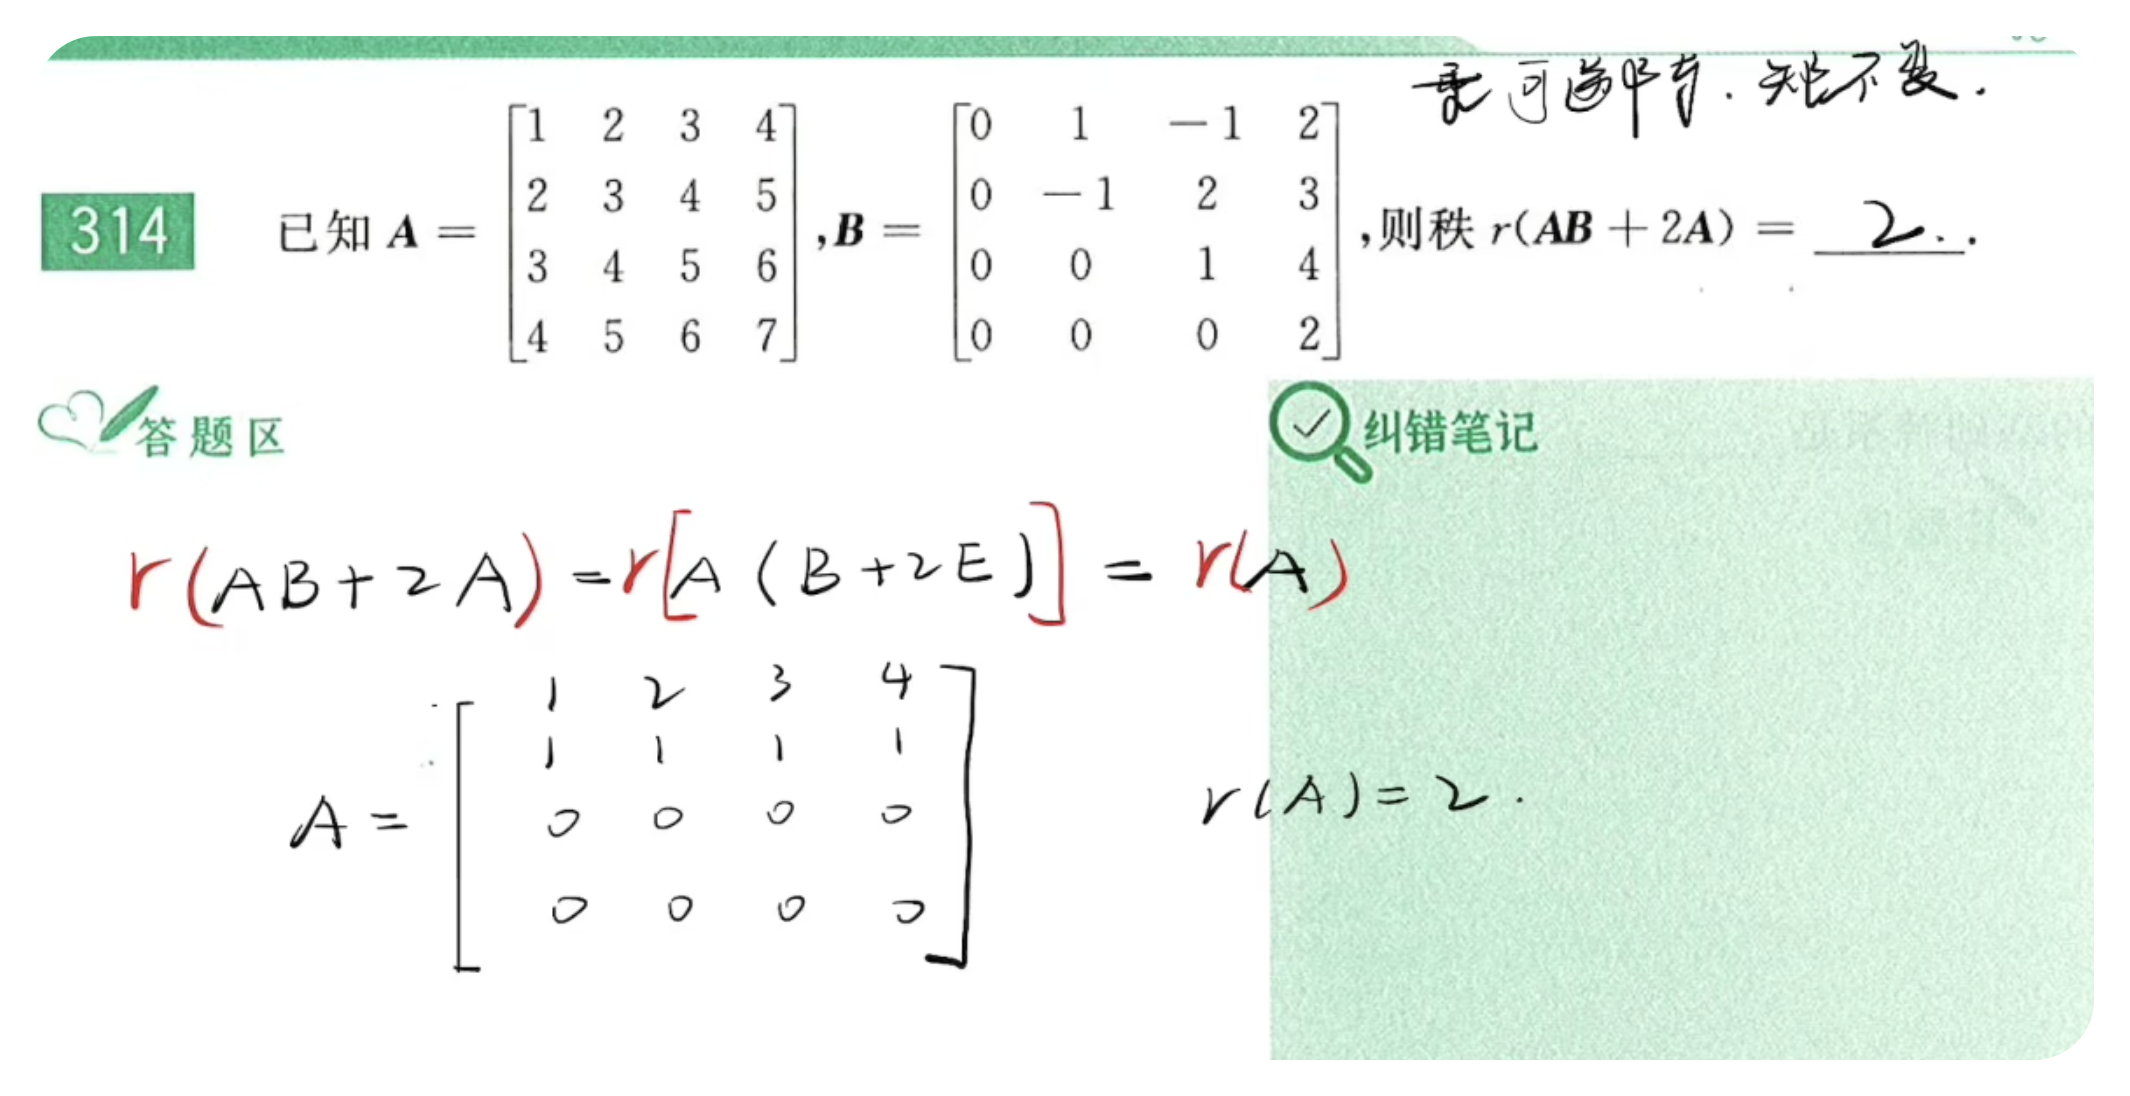 乘可逆矩阵. 秩不变.
314 已知 A = [1 2 3 4
2 3 4 5
3 4 5 6
4 5 6 7] , B = [0 1 −1 2
0 −1 2 3
0 0 1 4
0 0 0 2] ,则秩 r(AB + 2A) = 2.
答题区
纠错笔记
r(AB+2A) = r[A(B+2E)] = r(A)
A = [1 2 3 4
1 1 1 1
0 0 0 0
0 0 0 0]
r(A)=2.